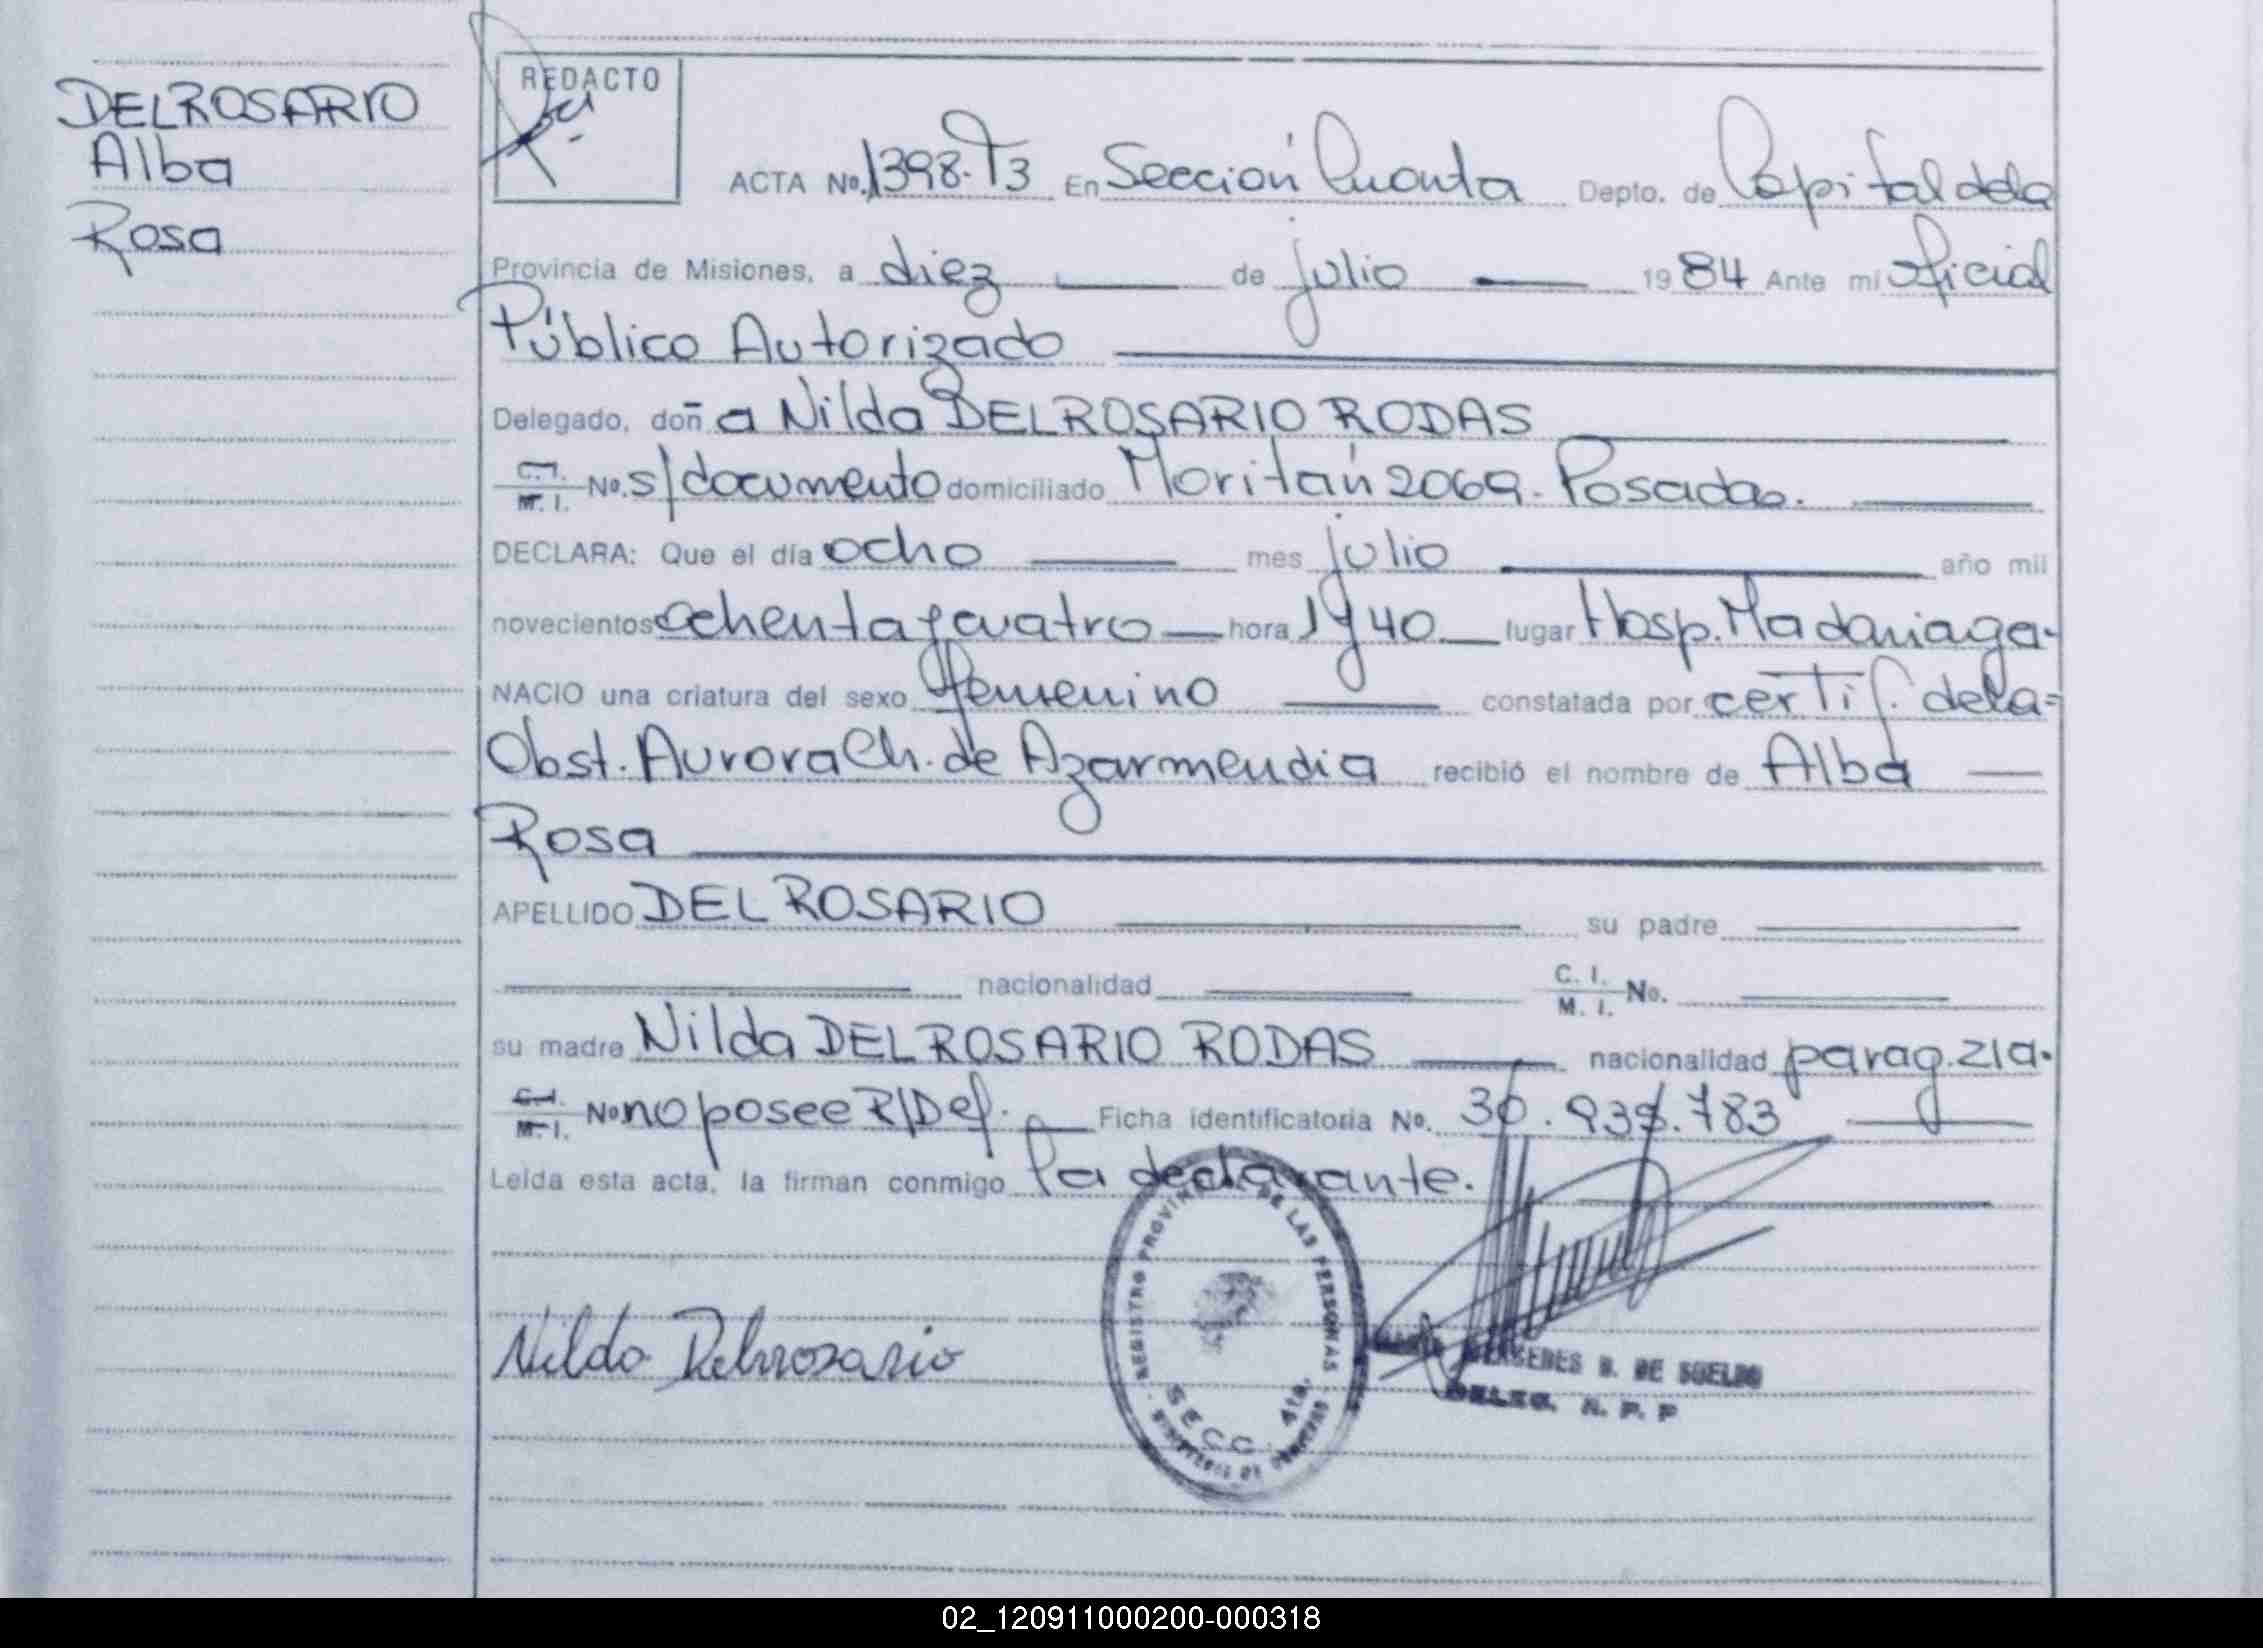 DELROSARIO
Alba
Rosa
REDACTO
ACTA No. 1398-T3 En Sección Cuarta Depto. de Capital de la
Provincia de Misiones, a diez de julio 1984 Ante mí Oficial
Público Autorizado
Delegado, doña Nilda DELROSARIO RODAS
C.I. M.I. No. s/documento domiciliado Moritán 2069. Posadas.
DECLARA: Que el día ocho mes julio año mil
novecientos ochenta y cuatro hora 1 y 40 lugar Hosp. Madariaga.
NACIO una criatura del sexo femenino constatada por certif. de la=
Obst. Aurora Ch. de Azarmendia recibió el nombre de Alba
Rosa
APELLIDO DELROSARIO su padre
nacionalidad C. I. M. I. No.
su madre Nilda DELROSARIO RODAS nacionalidad parag.
C.I. M.I. No no posee R/Def. Ficha identificatoria No. 30.938.783
Leída esta acta, la firman conmigo la declarante.
Nilda Delrosario
REGISTRO PROVINCIAL DE LAS PERSONAS
SECC. 4ta.
MINISTERIO DE GOBIERNO
MERCEDES B. DE SUELDO
DELEG. R. P. P
02_120911000200-000318